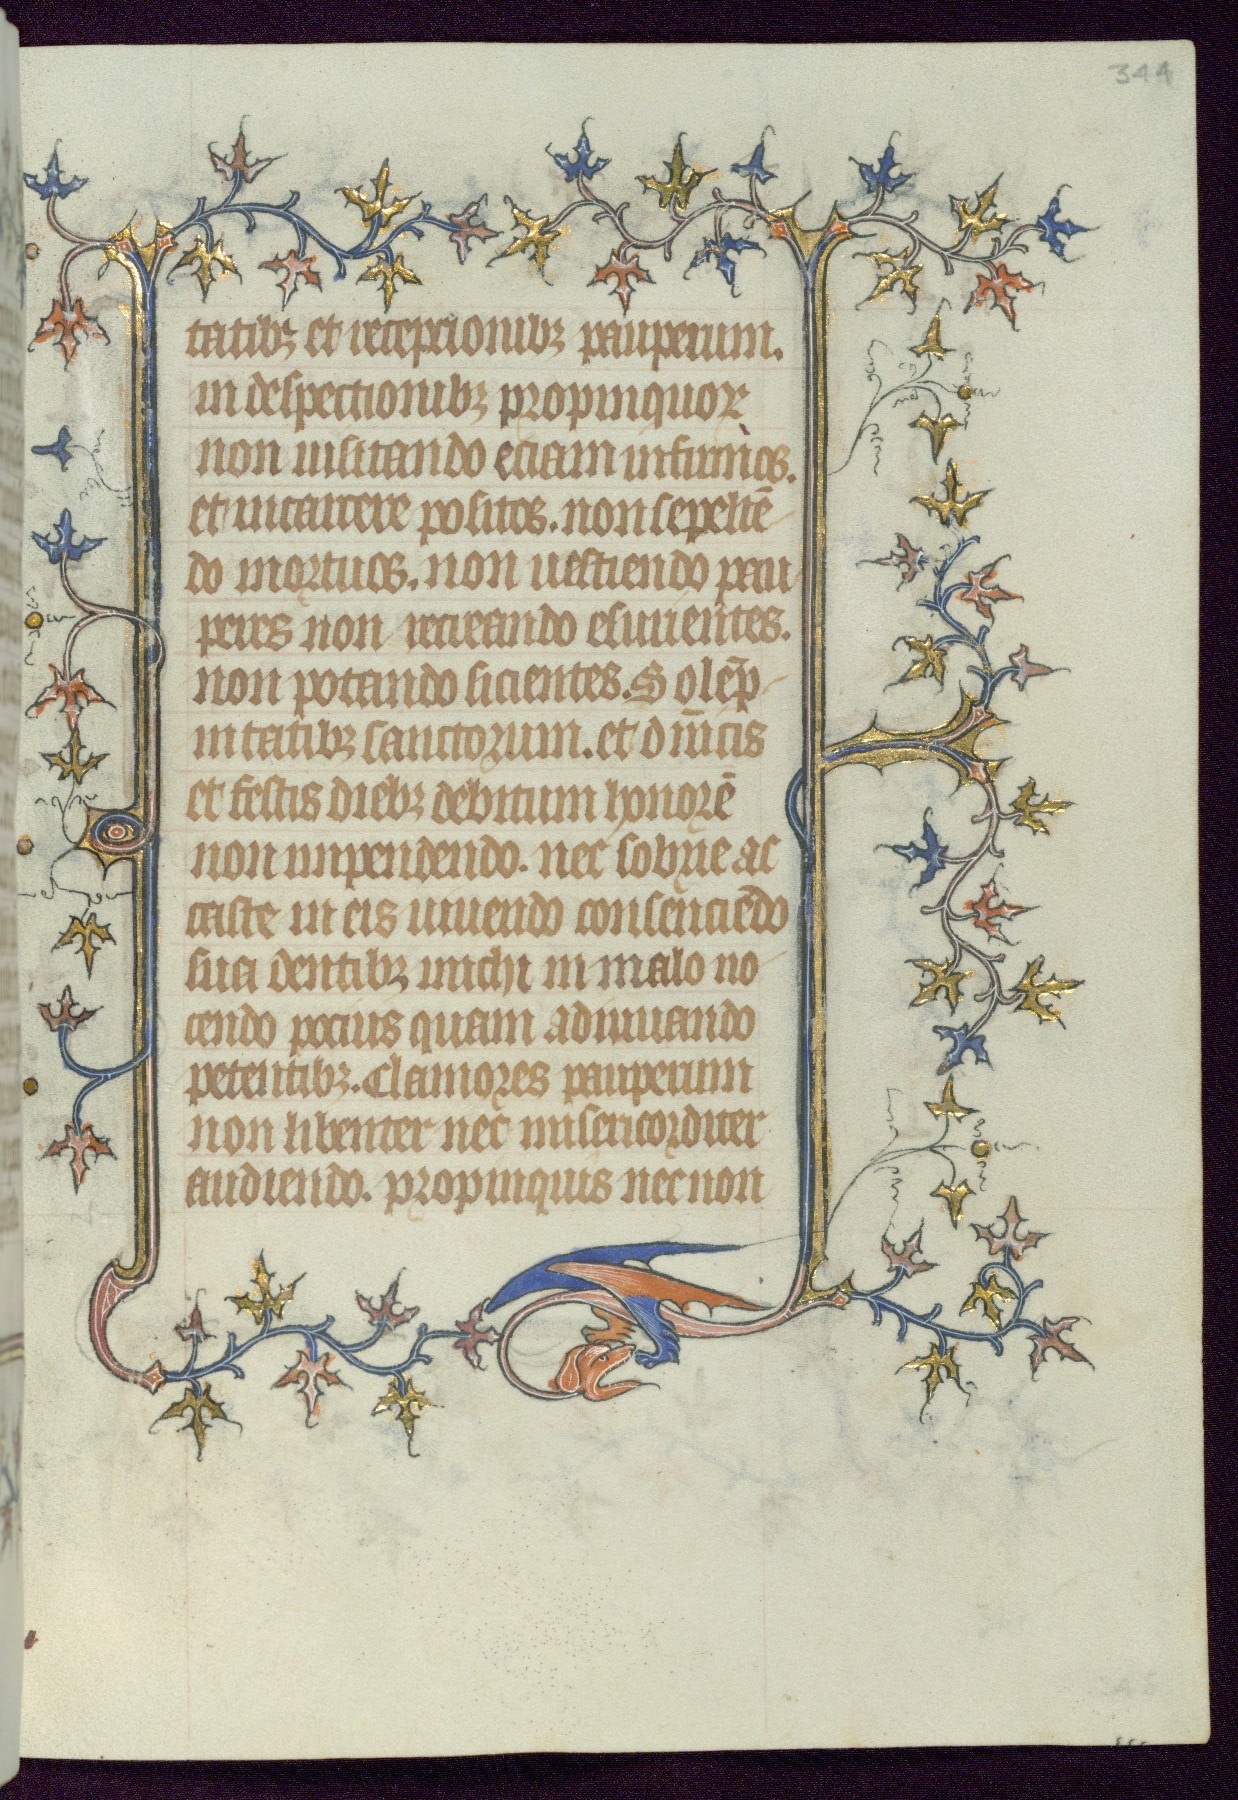 344
tatibꝫ et receptionibꝫ pauperum.
in despectionibꝫ propinquoꝝ
non uisitando etiam infirmos.
et in carcere positos. non sepeliē
do mortuos. non uestiendo pau
peres non recreando esurientes.
non potando sicientes. Solēp
nitatibꝫ sanctorum. et dn̄icis
et festis diebꝫ debitum honorē
non inpendendo. nec sobrie ac
caste in eis uiuendo consenciēdo
sua dentibꝫ michi in malo no
cendo pocius quam adiuuando
petentibꝫ. Clamores pauperum
non libenter nec misericorditer
audiendo. propinquis nec non